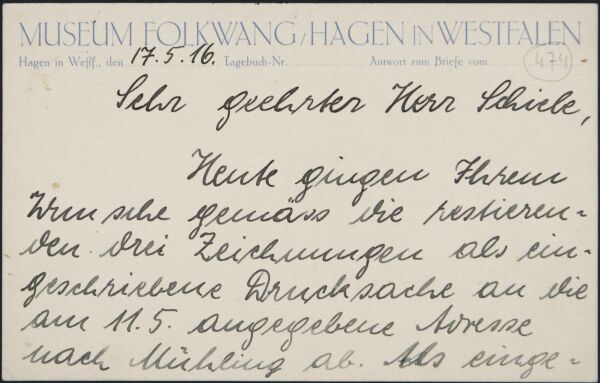 MUSEUM FOLKWANG / HAGEN IN WESTFALEN
Hagen in Westf., den 17.5.16. Tagebuch-Nr. Antwort zum Briefe vom 474
Sehr geehrter Herr Schiele,
Heute gingen Ihrem
Wunsche gemäss die restieren-
den drei Zeichnungen als ein-
geschriebene Drucksache an die
am 11.5. angegebene Adresse
nach Mühling ab. Als einge-